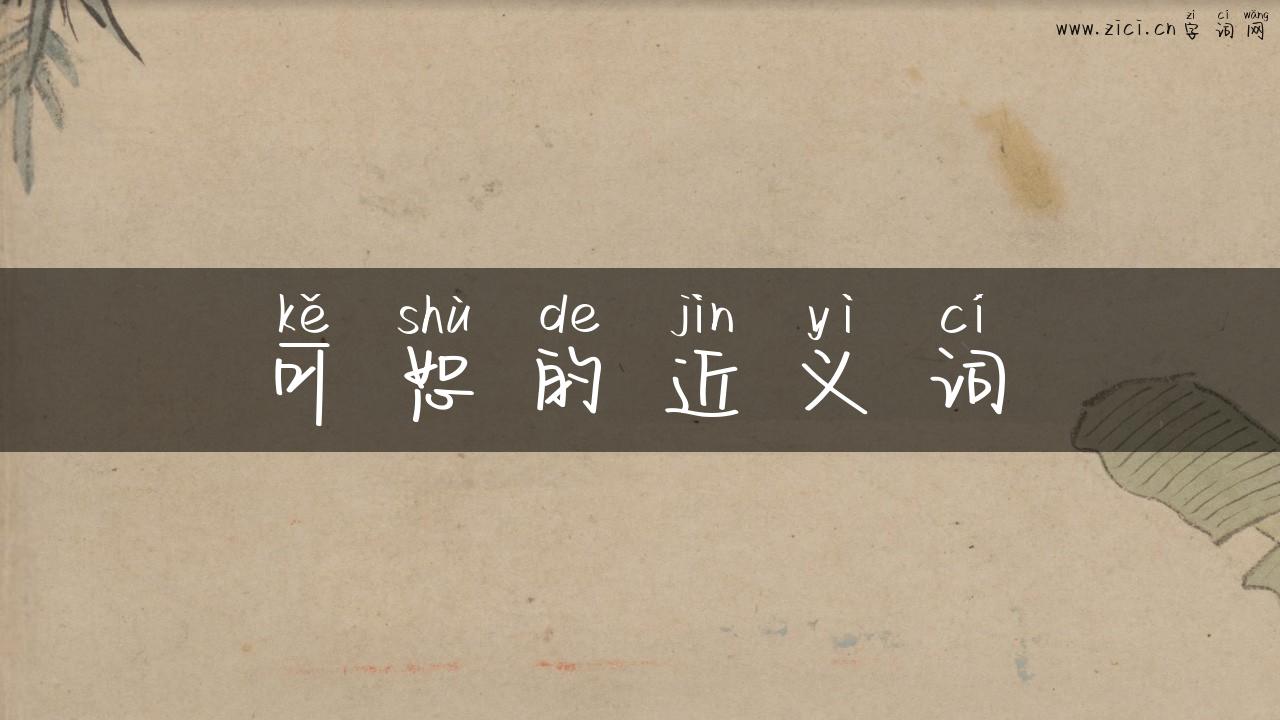 zì cí wǎng
www.zici.cn 字词网
kě shù de jìn yì cí
可恕的近义词